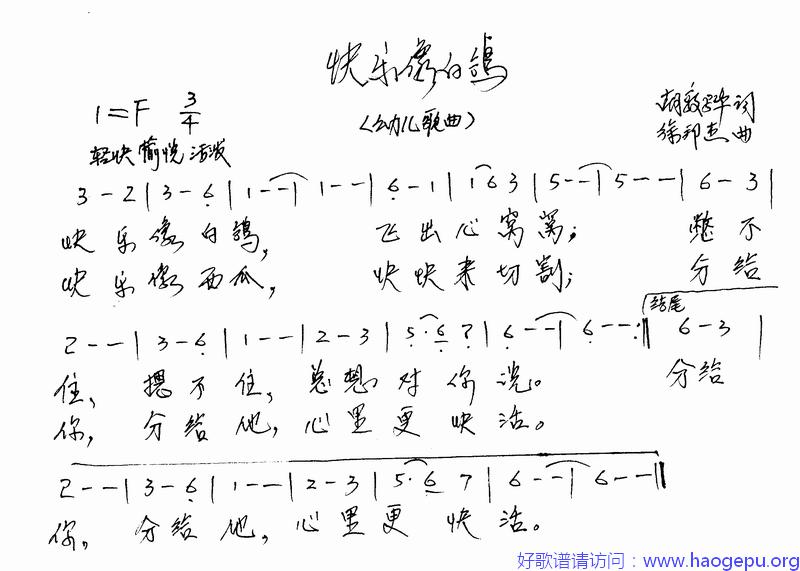 快乐像白鸽
1=F 3/4
(幼儿歌曲)
胡敦骅词
徐邦杰曲
轻快 愉悦 活泼
3 - 2 | 3 - 6 | 1 - - | 1 - - | 6 - 1 | 1 6 3 | 5 - - | 5 - - | 6 - 3 |
快乐像白鸽, 飞出心窝窝; 憋不
快乐像西瓜, 快快来切割; 分给
结尾
2 - - | 3 - 6 | 1 - - | 2 - 3 | 5· 6 7 | 6 - - | 6 - - :‖ 6 - 3 |
住, 摁不住, 总想对你说。 分给
你, 分给他, 心里更快活。
2 - - | 3 - 6 | 1 - - | 2 - 3 | 5· 6 7 | 6 - - | 6 - - ‖
你, 分给他, 心里更快活。
好歌谱请访问:www.haogepu.org